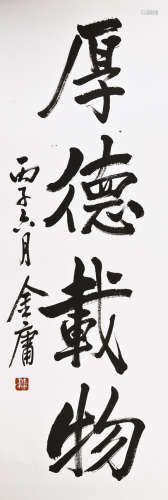 厚德載物
丙子六月
金庸